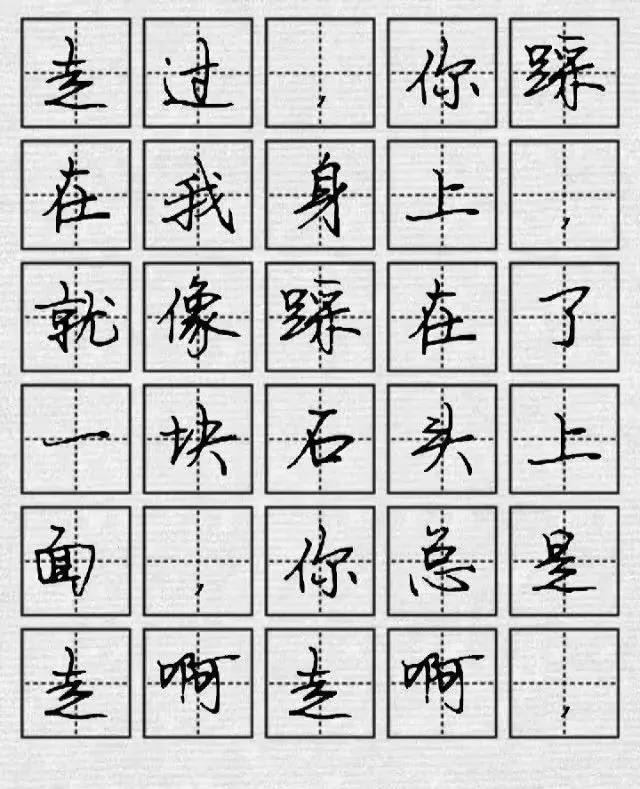 走过，你踩
在我身上，
就像踩在了
一块石头上
面，你总是
走啊走啊，